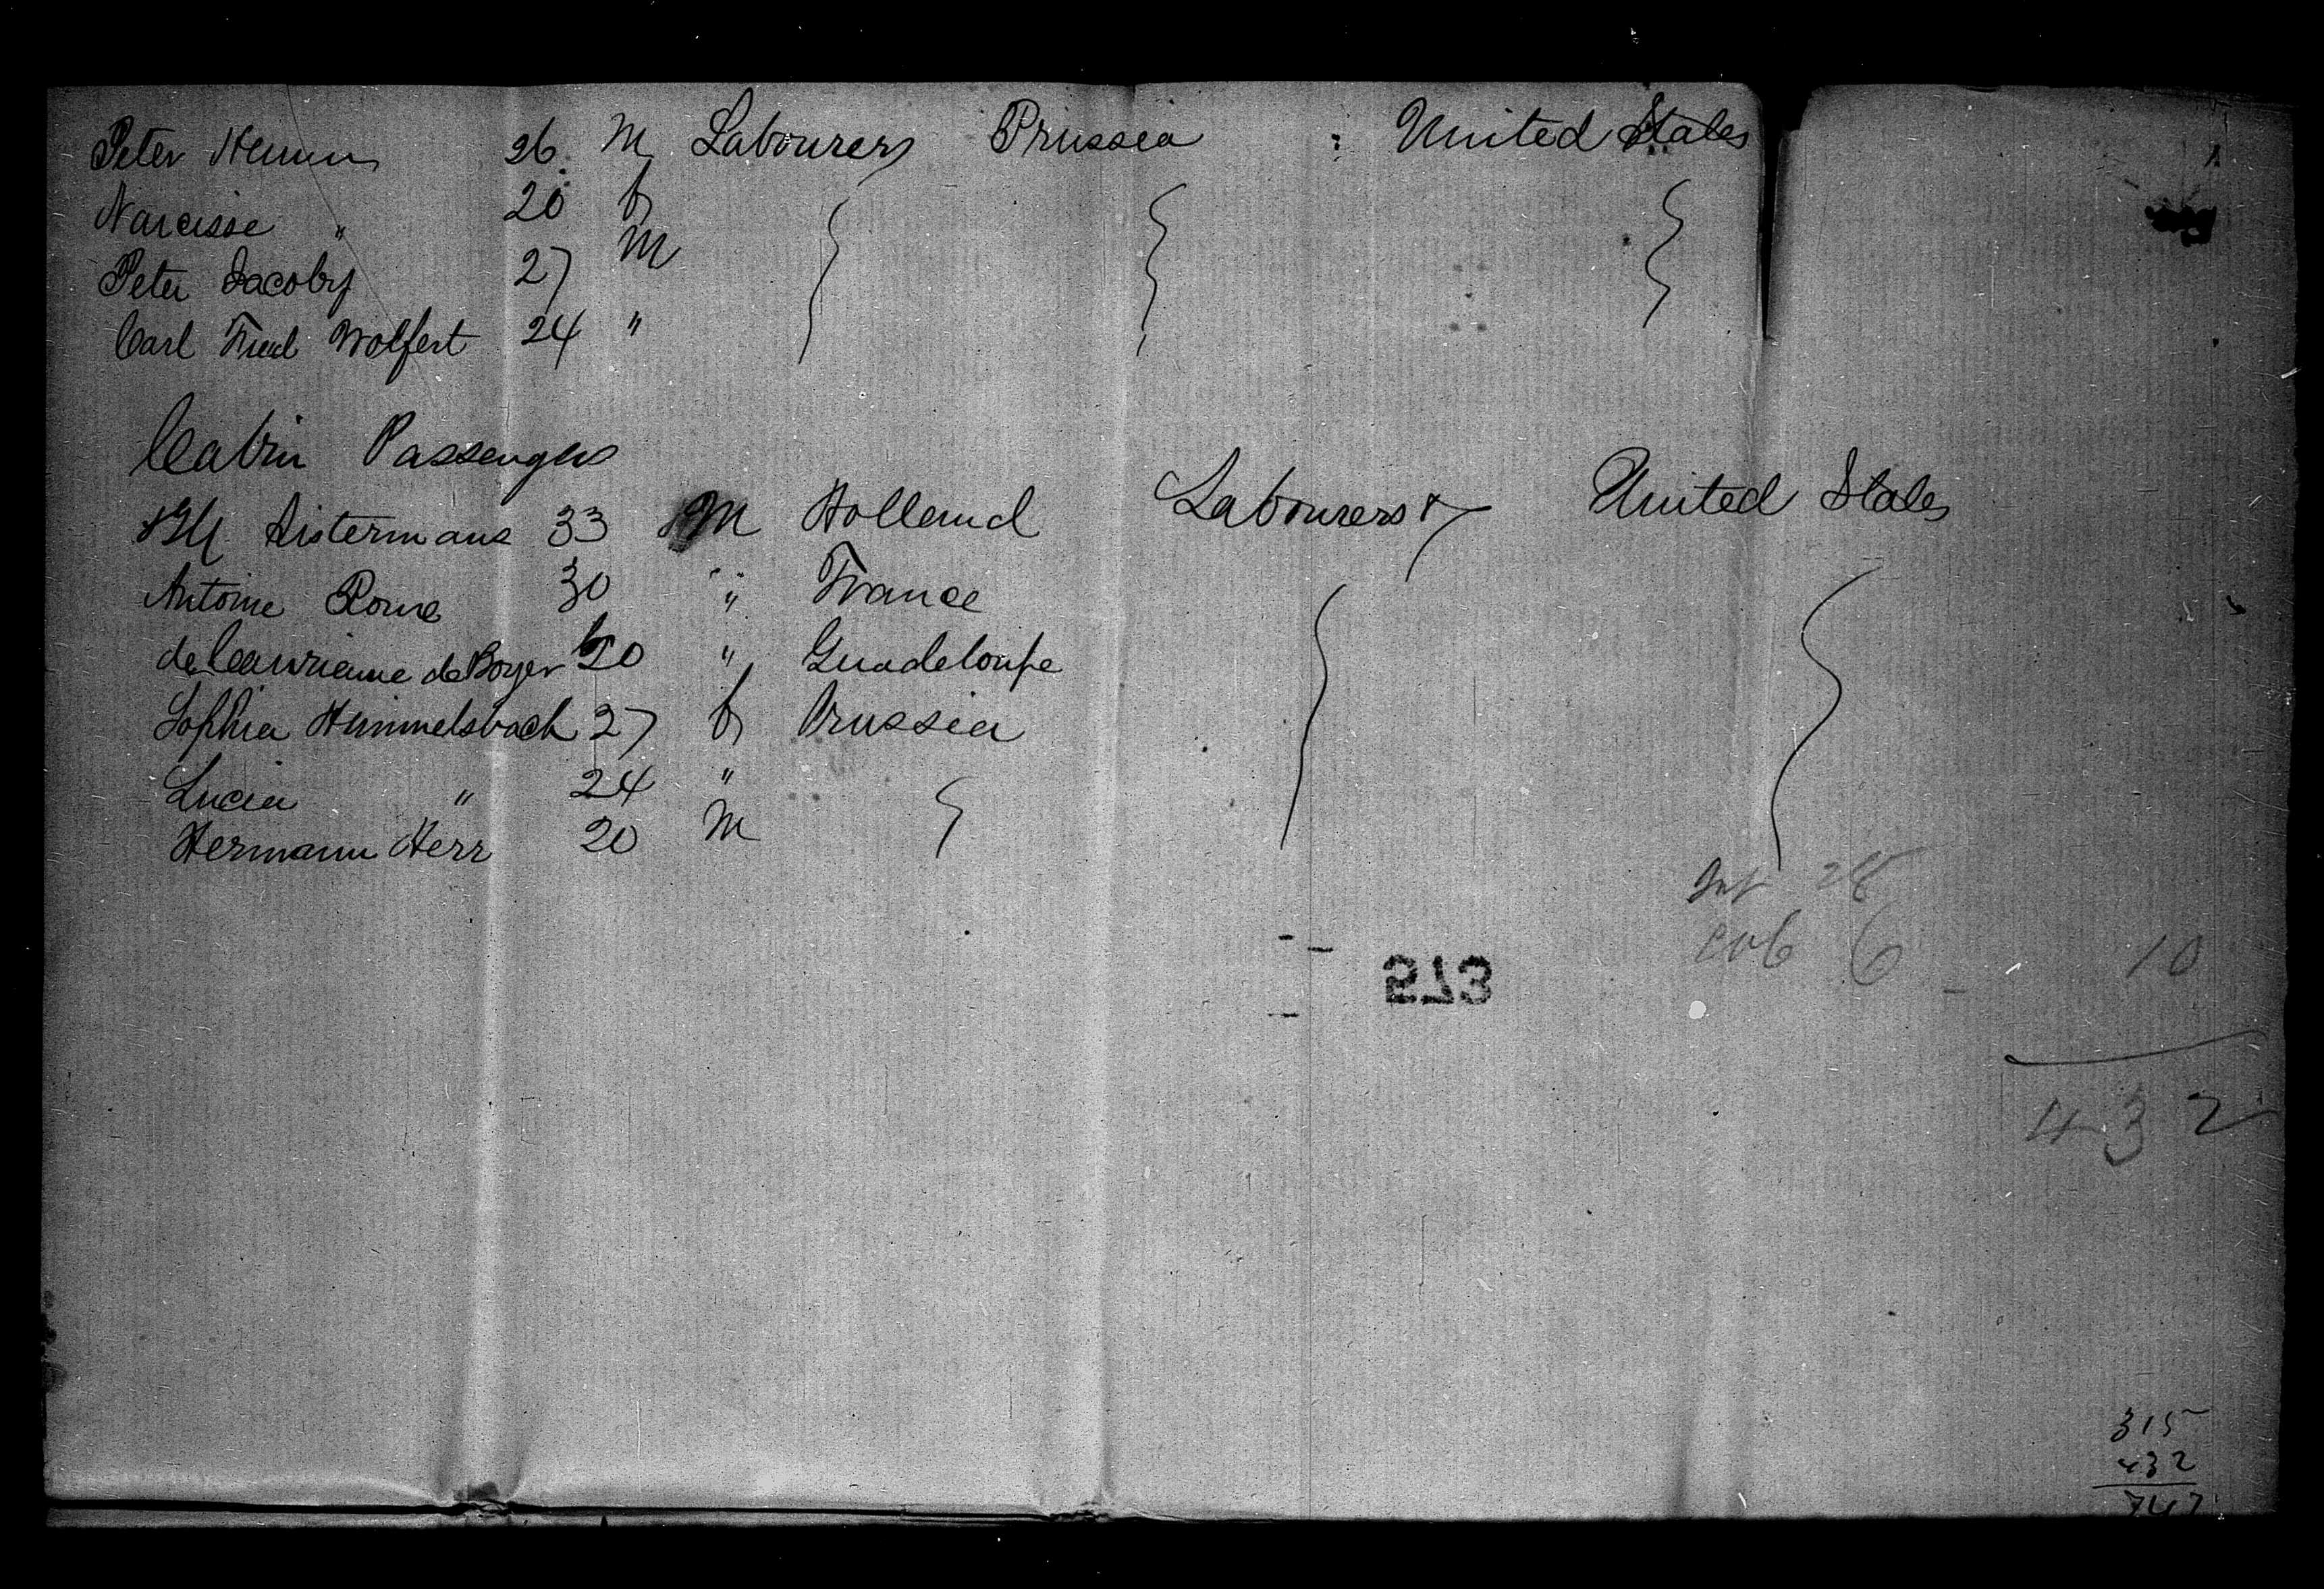 Peter Hemm 26 M Labourers Prussia : United States
Narcisse " 20 f
Peter Jacoby 27 M
Carl Fred Wolfert 24 "
Cabin Passengers
Listermans 33 M Holland Labourers United States
Antoine Rome 30 " France
de de Boyer 50 " Guadeloupe
Sophia Himmelsbach 27 f Prussia
Lucia " 24 "
Hermann Herr 20 M
28
cab 6 10
273
432
315
432
747